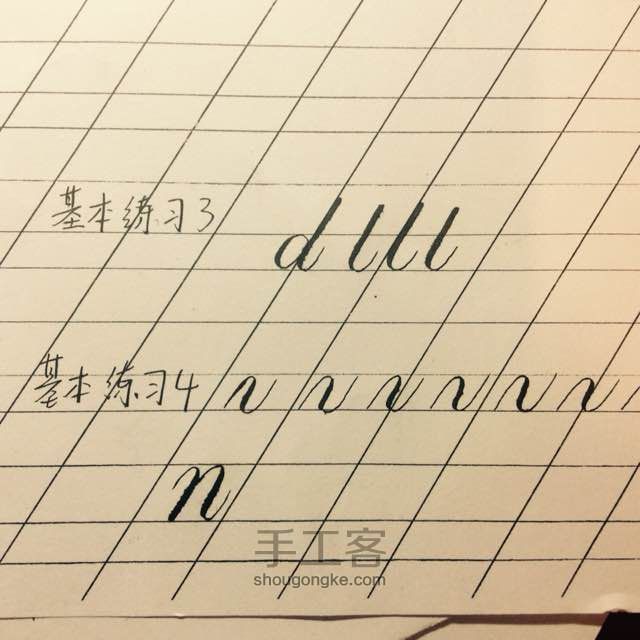 基本练习3 d l l l
基本练习4 
n
手工客
shougongke.com